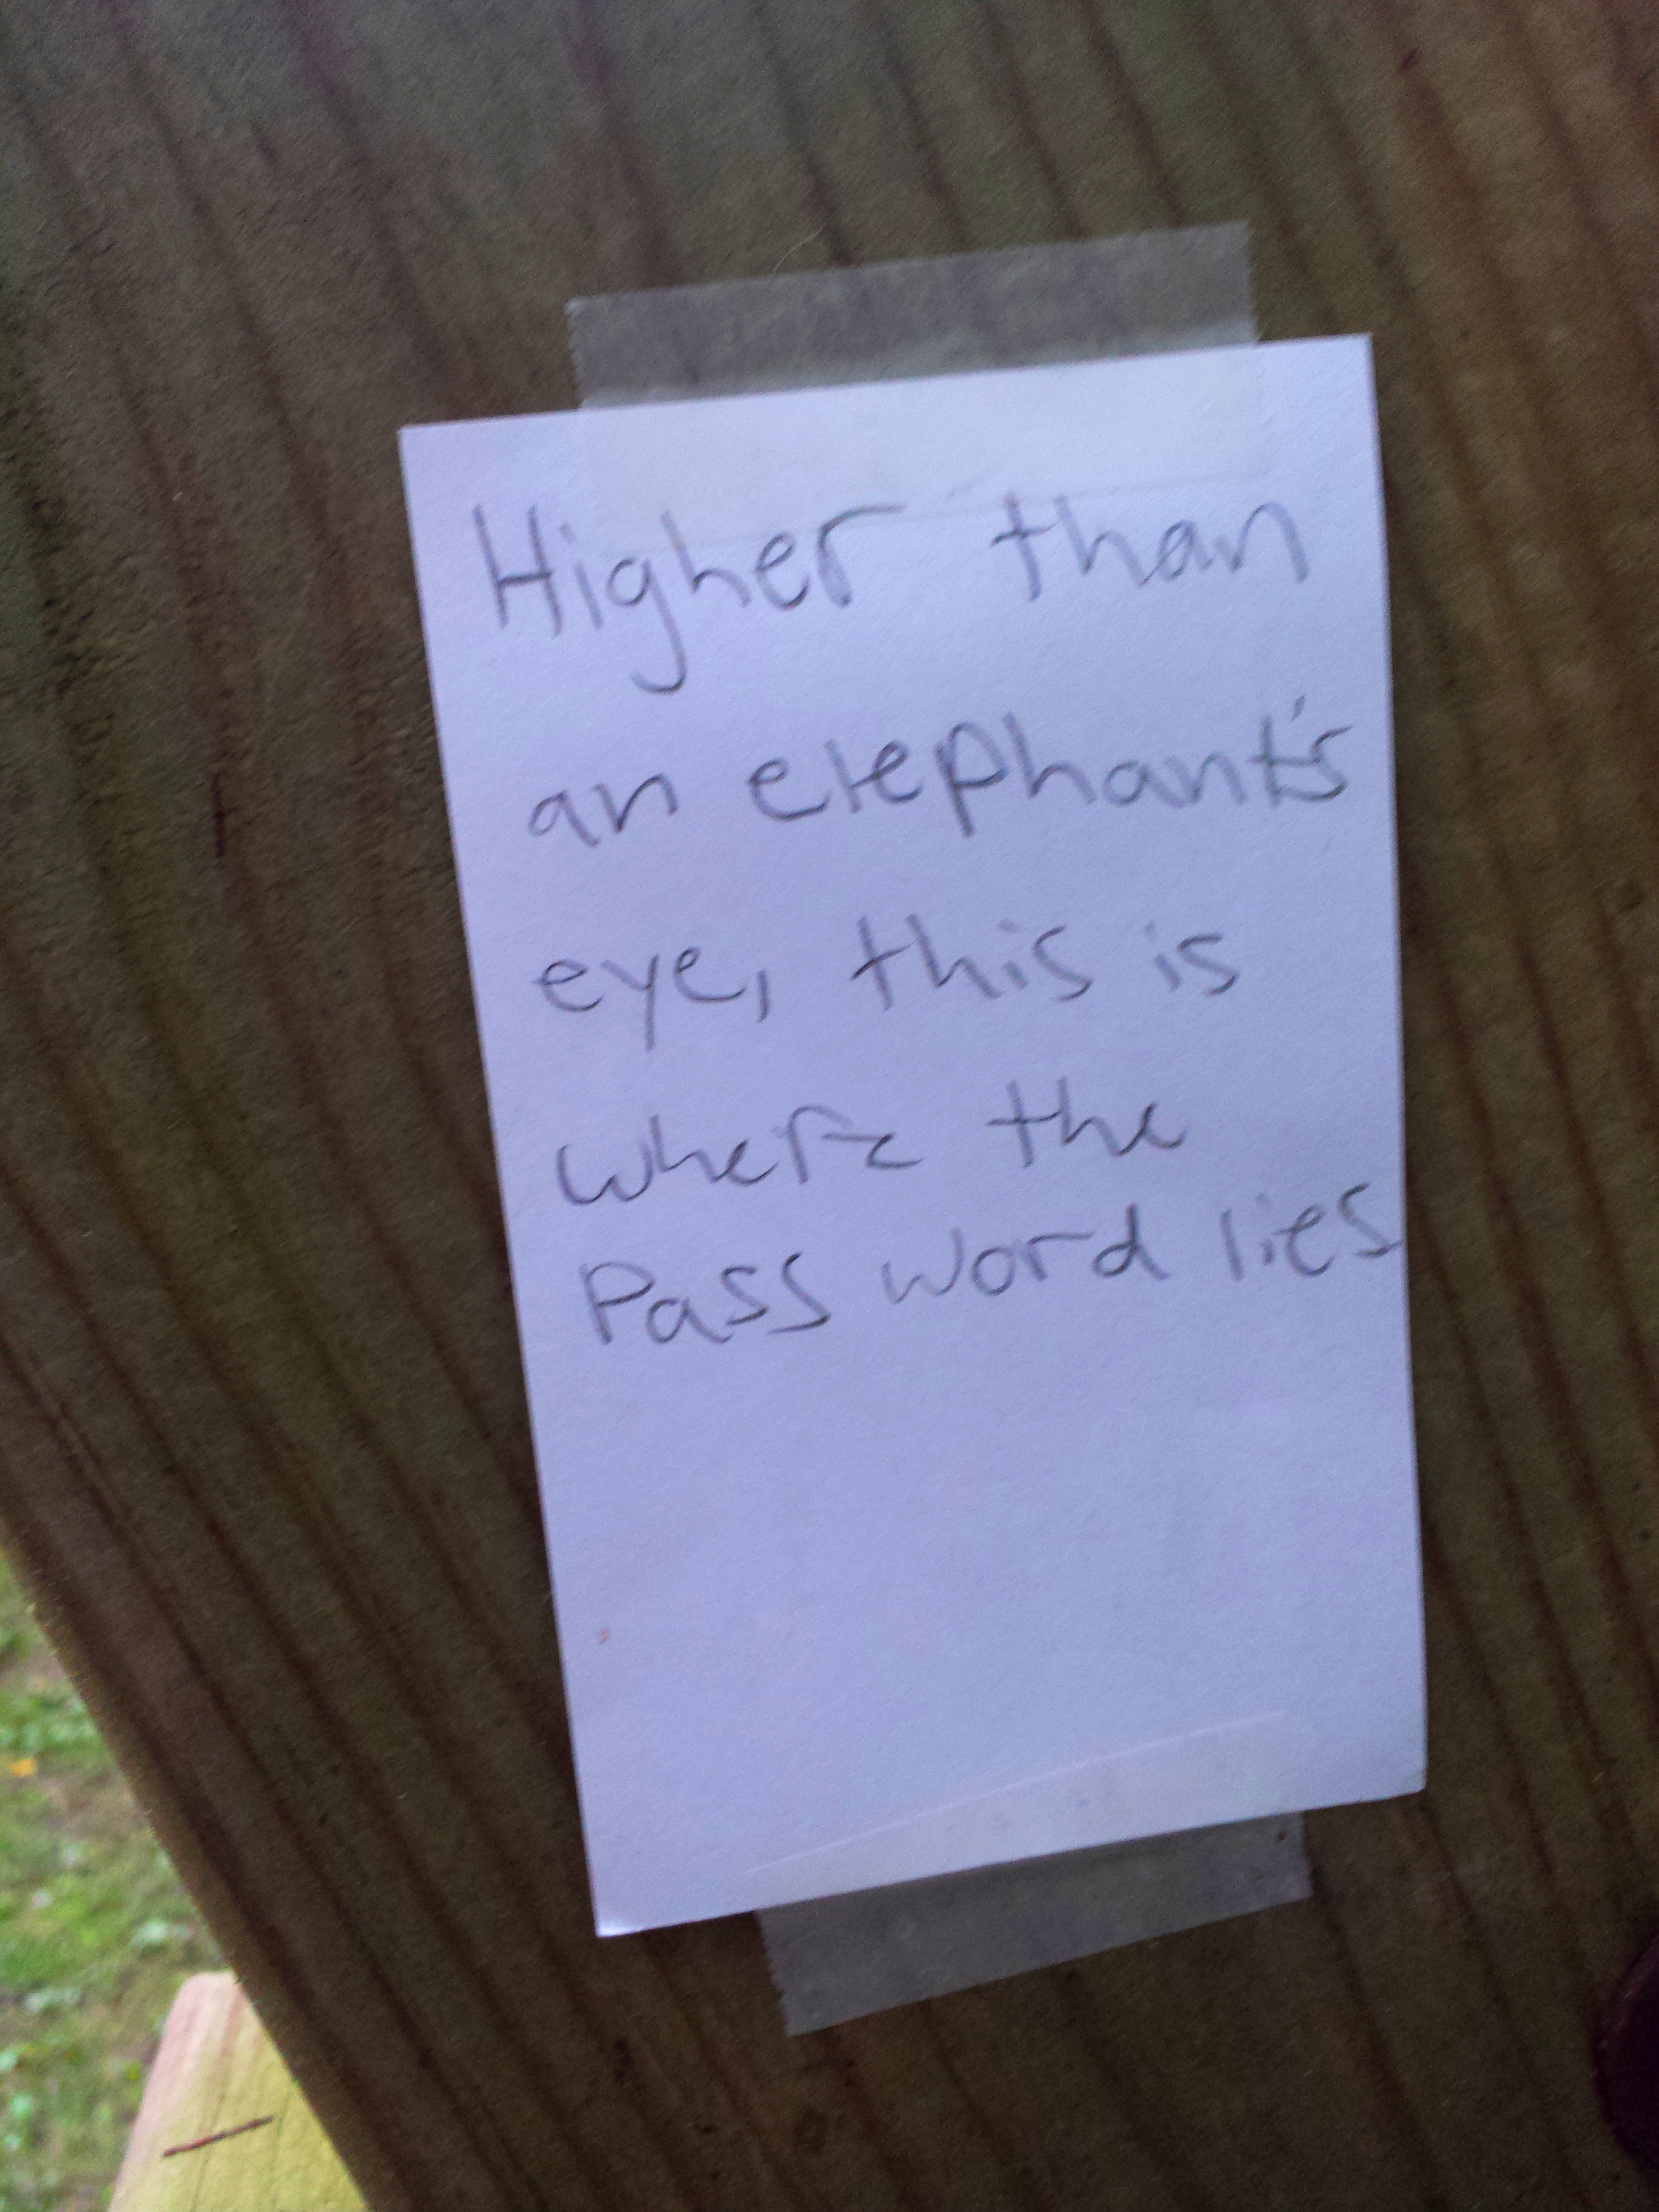 Higher than
an elephant's
eye, this is
where the
Pass word lies